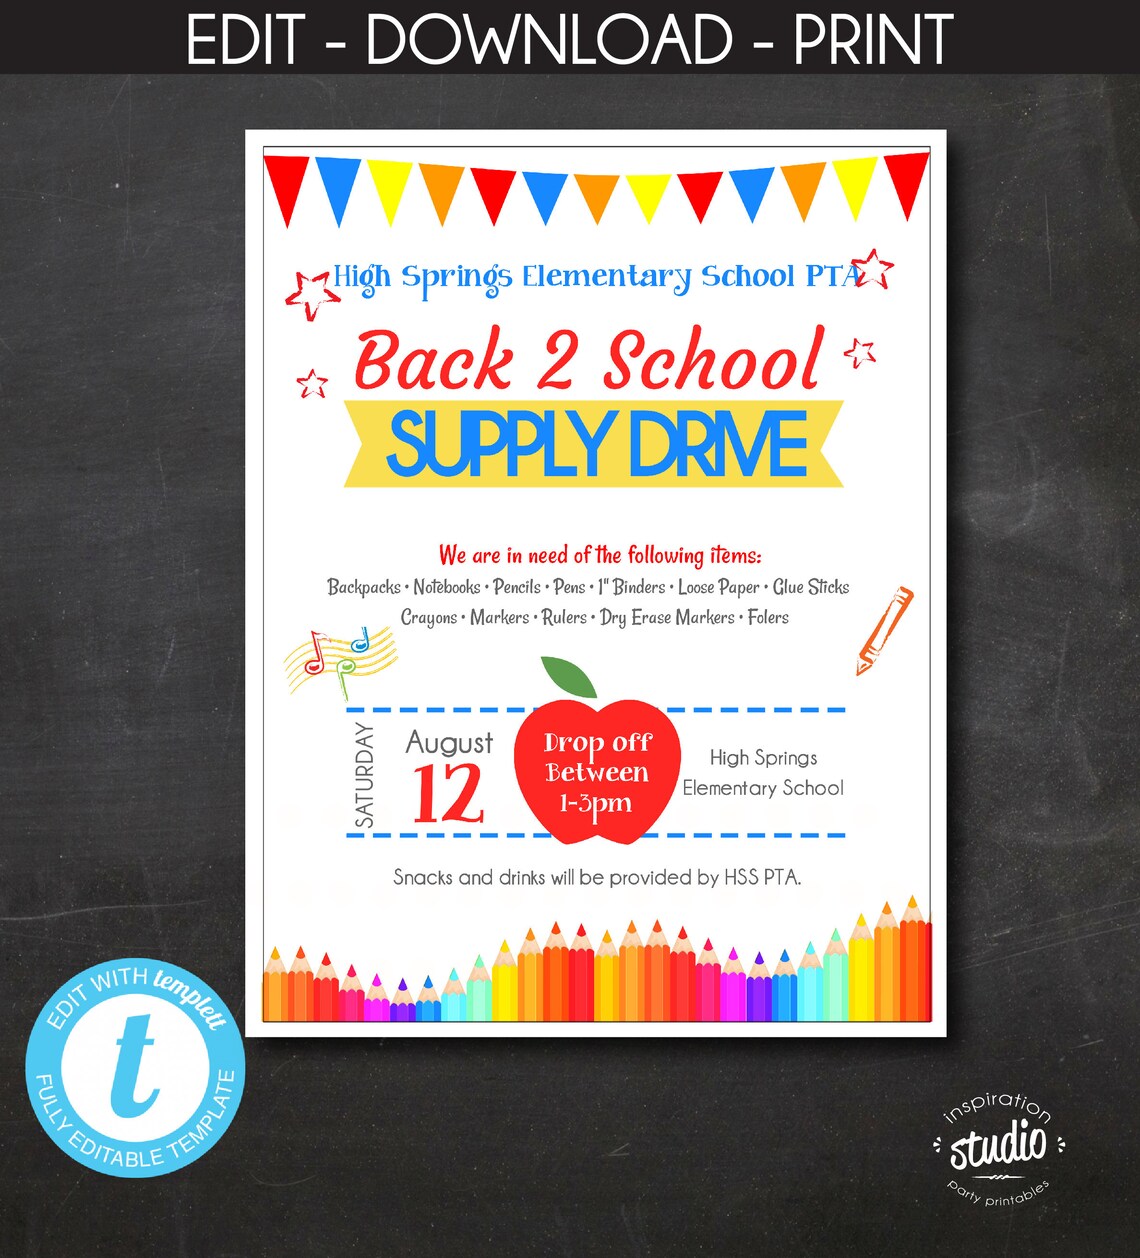 EDIT - DOWNLOAD - PRINT
High Springs Elementary School PTA
Back 2 School
SUPPLY DRIVE
We are in need of the following items:
Backpacks • Notebooks • Pencils • Pens • 1" Binders • Loose Paper • Glue Sticks
Crayons • Markers • Rulers • Dry Erase Markers • Folers
SATURDAY
August
12
Drop off
Between
1-3pm
High Springs
Elementary School
Snacks and drinks will be provided by HSS PTA.
EDIT WITH templett
t
FULLY EDITABLE TEMPLATE
inspiration
studio
party printables